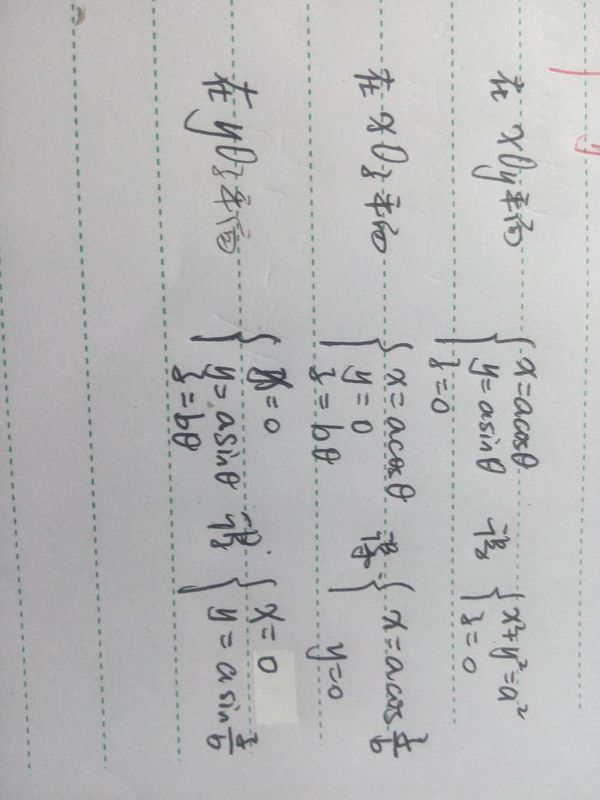 在 xOy平面 { x=acosθ y=asinθ z=0 即 { x²+y²=a² z=0
在 xOz平面 { x=acosθ y=0 z=bθ 即 { x=acos z/b y=0
在 yOz平面 { x=0 y=asinθ z=bθ 即 { x=0 y=asin z/b